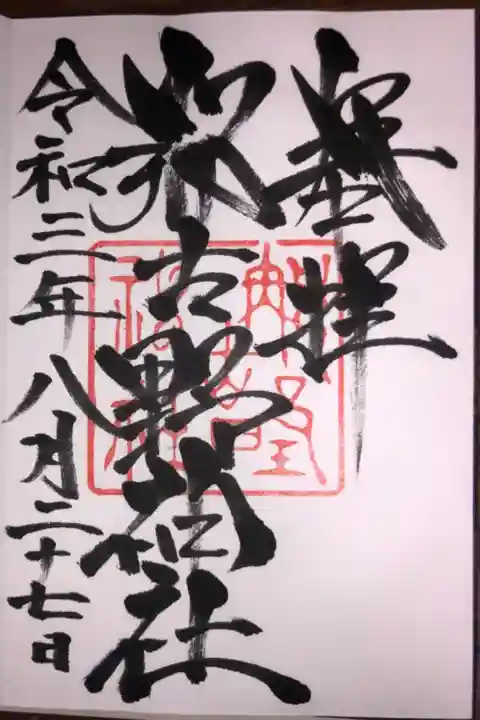 奉拝
那古野神社
令和三年八月二十七日